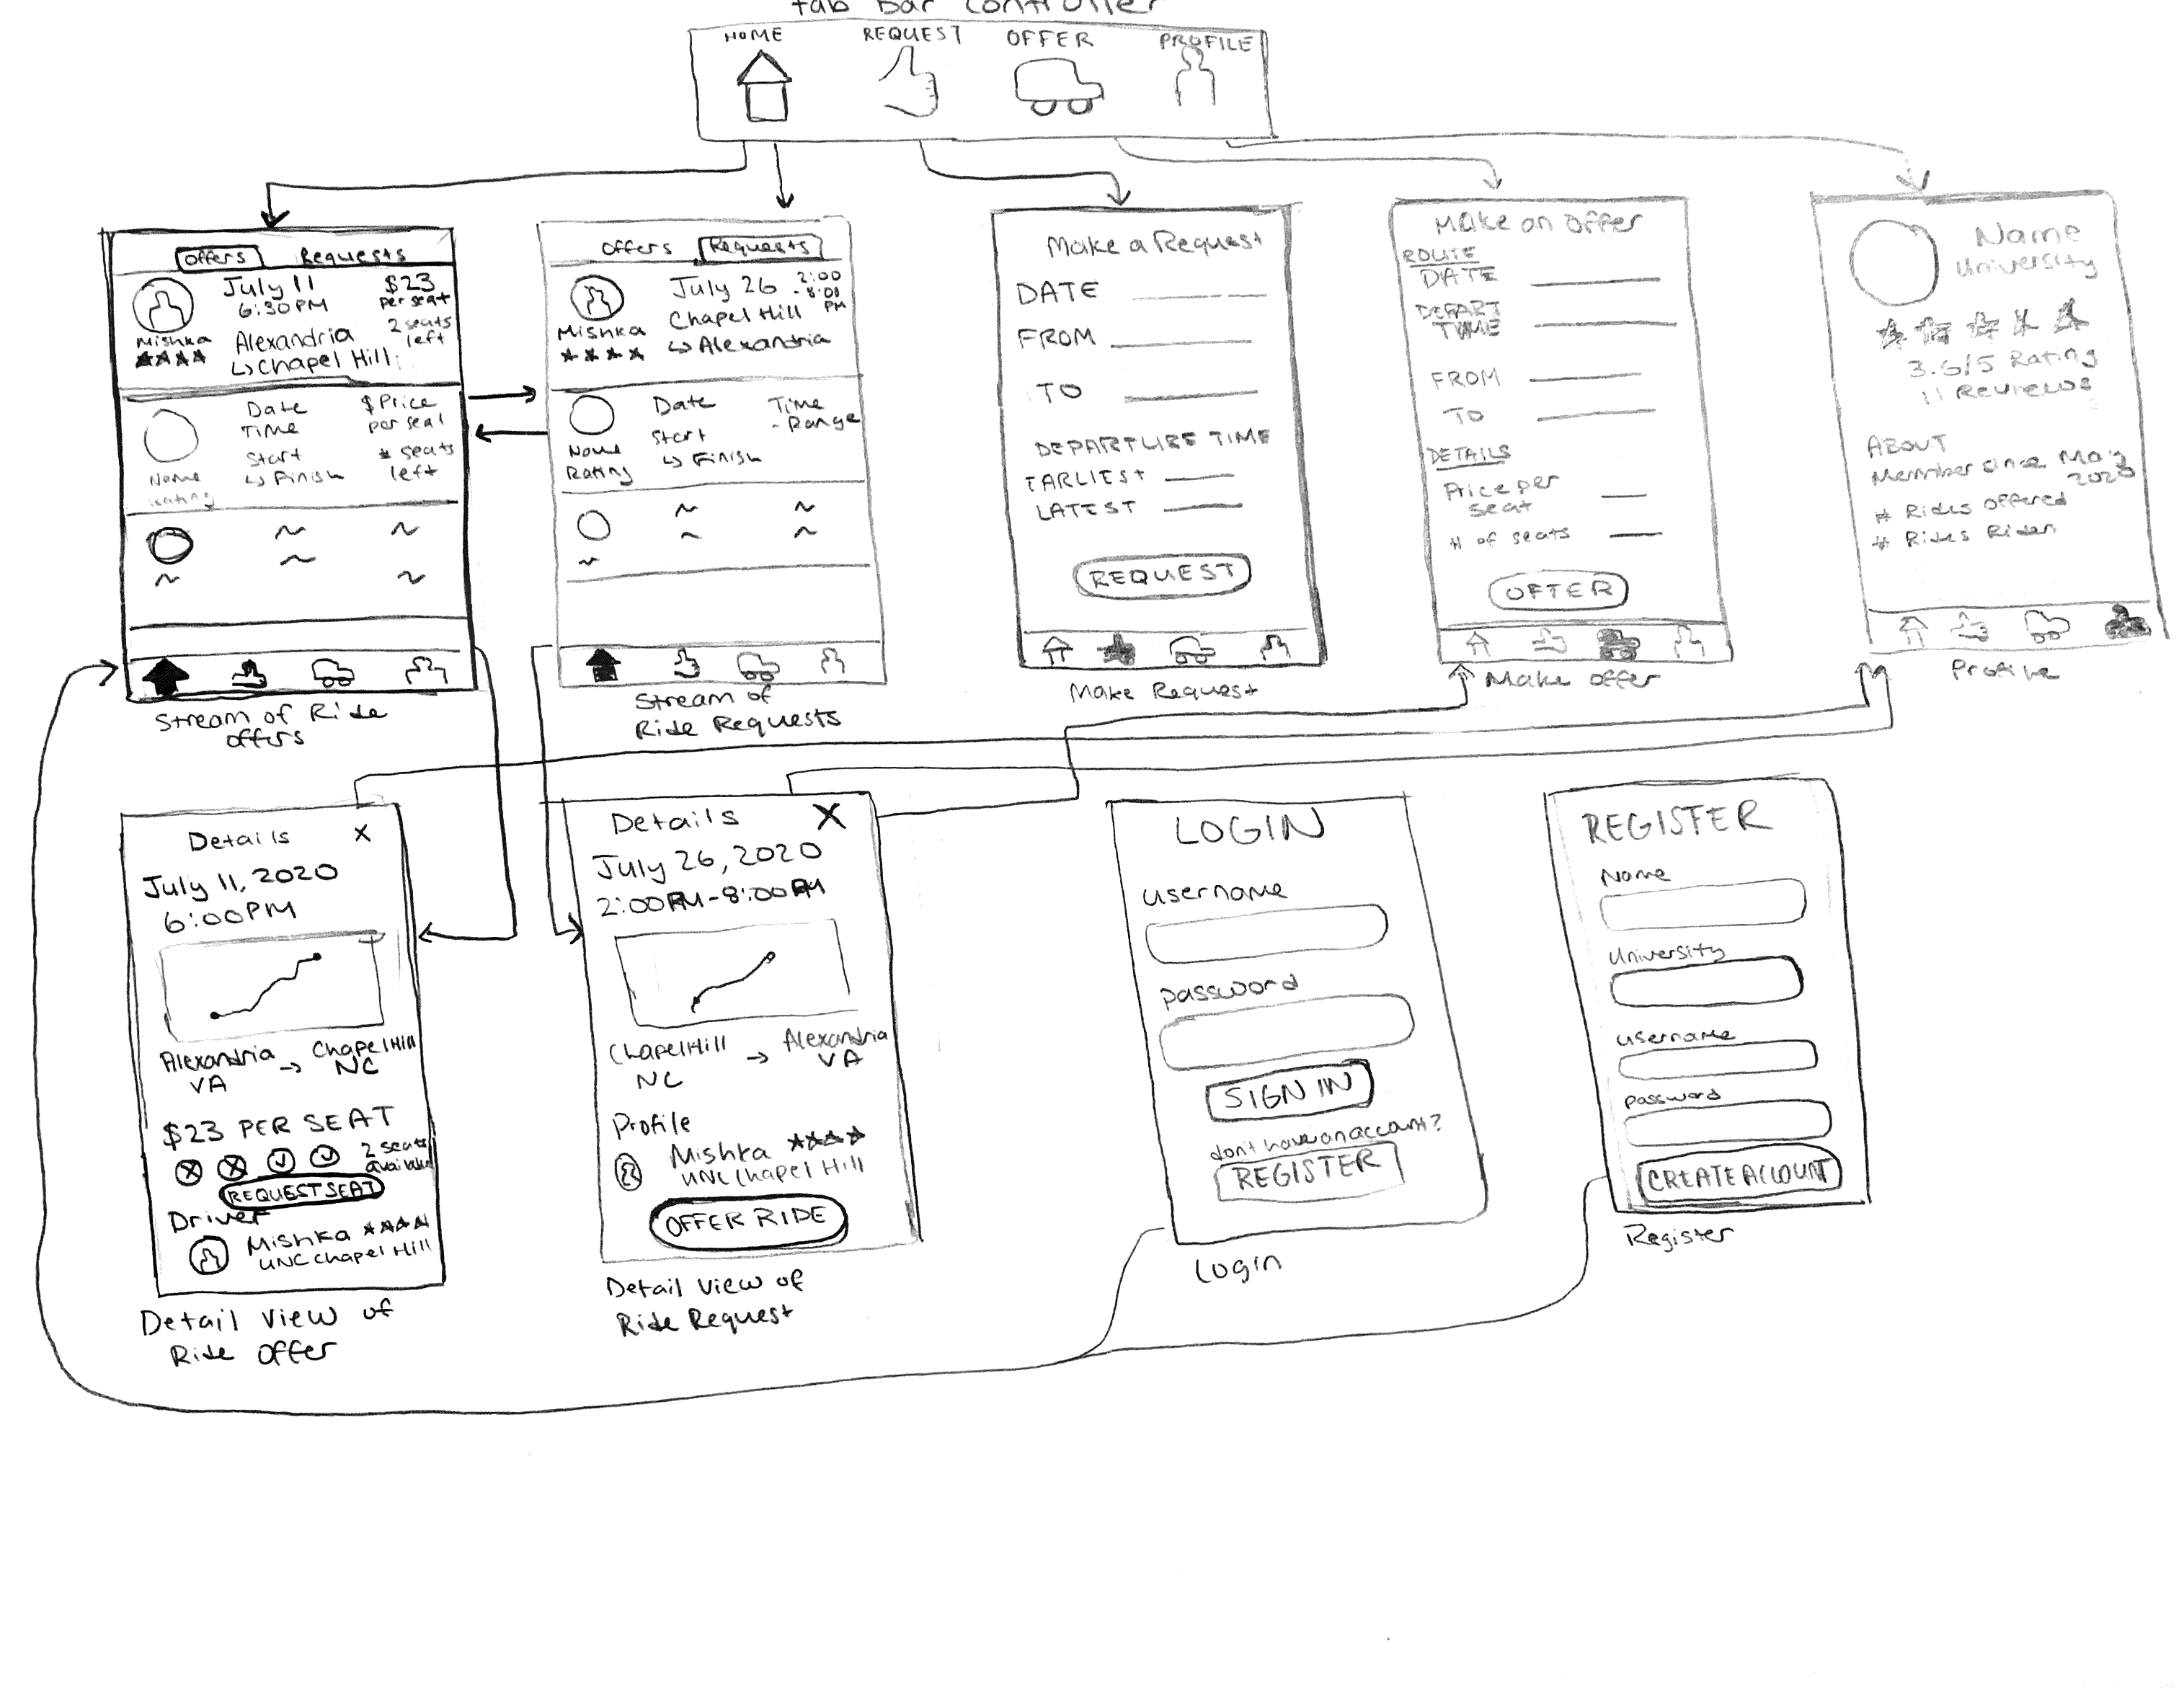 Tab Bar Controller
HOME
REQUEST
OFFER
PROFILE
Offers Requests
July 11 $23
6:30PM per seat
Mishka Alexandria 2 seats
↳ Chapel Hill left
Date $Price
Time per seat
Start # seats
Name ↳ Finish left
Rating
Stream of Ride
Offers
Offers Requests
July 26 2:00
- 8:00
PM
Chapel Hill
Mishka ↳ Alexandria
Date Time
Start - Range
Name ↳ Finish
Rating
Stream of
Ride Requests
Make a Request
DATE
FROM
TO
DEPARTURE TIME
EARLIEST
LATEST
REQUEST
Make Request
Make an Offer
ROUTE
DATE
DEPART
TIME
FROM
TO
DETAILS
Price per
seat
# of seats
OFFER
Make Offer
Name
University
3.6/5 Rating
11 Reviews
ABOUT
Member since May
2020
# Rides Offered
# Rides Riden
Profile
Details X
July 11, 2020
6:00PM
Alexandria → Chapel Hill
VA NC
$23 PER SEAT
2 seats
available
REQUEST SEAT
Driver
Mishka
UNC Chapel Hill
Detail View of
Ride Offer
Details X
July 26, 2020
2:00PM-8:00PM
Chapel Hill → Alexandria
NC VA
Profile
Mishka
UNC Chapel Hill
OFFER RIDE
Detail View of
Ride Request
LOGIN
username
password
SIGN IN
don't have an account?
REGISTER
Login
REGISTER
Name
University
username
password
CREATE ACCOUNT
Register